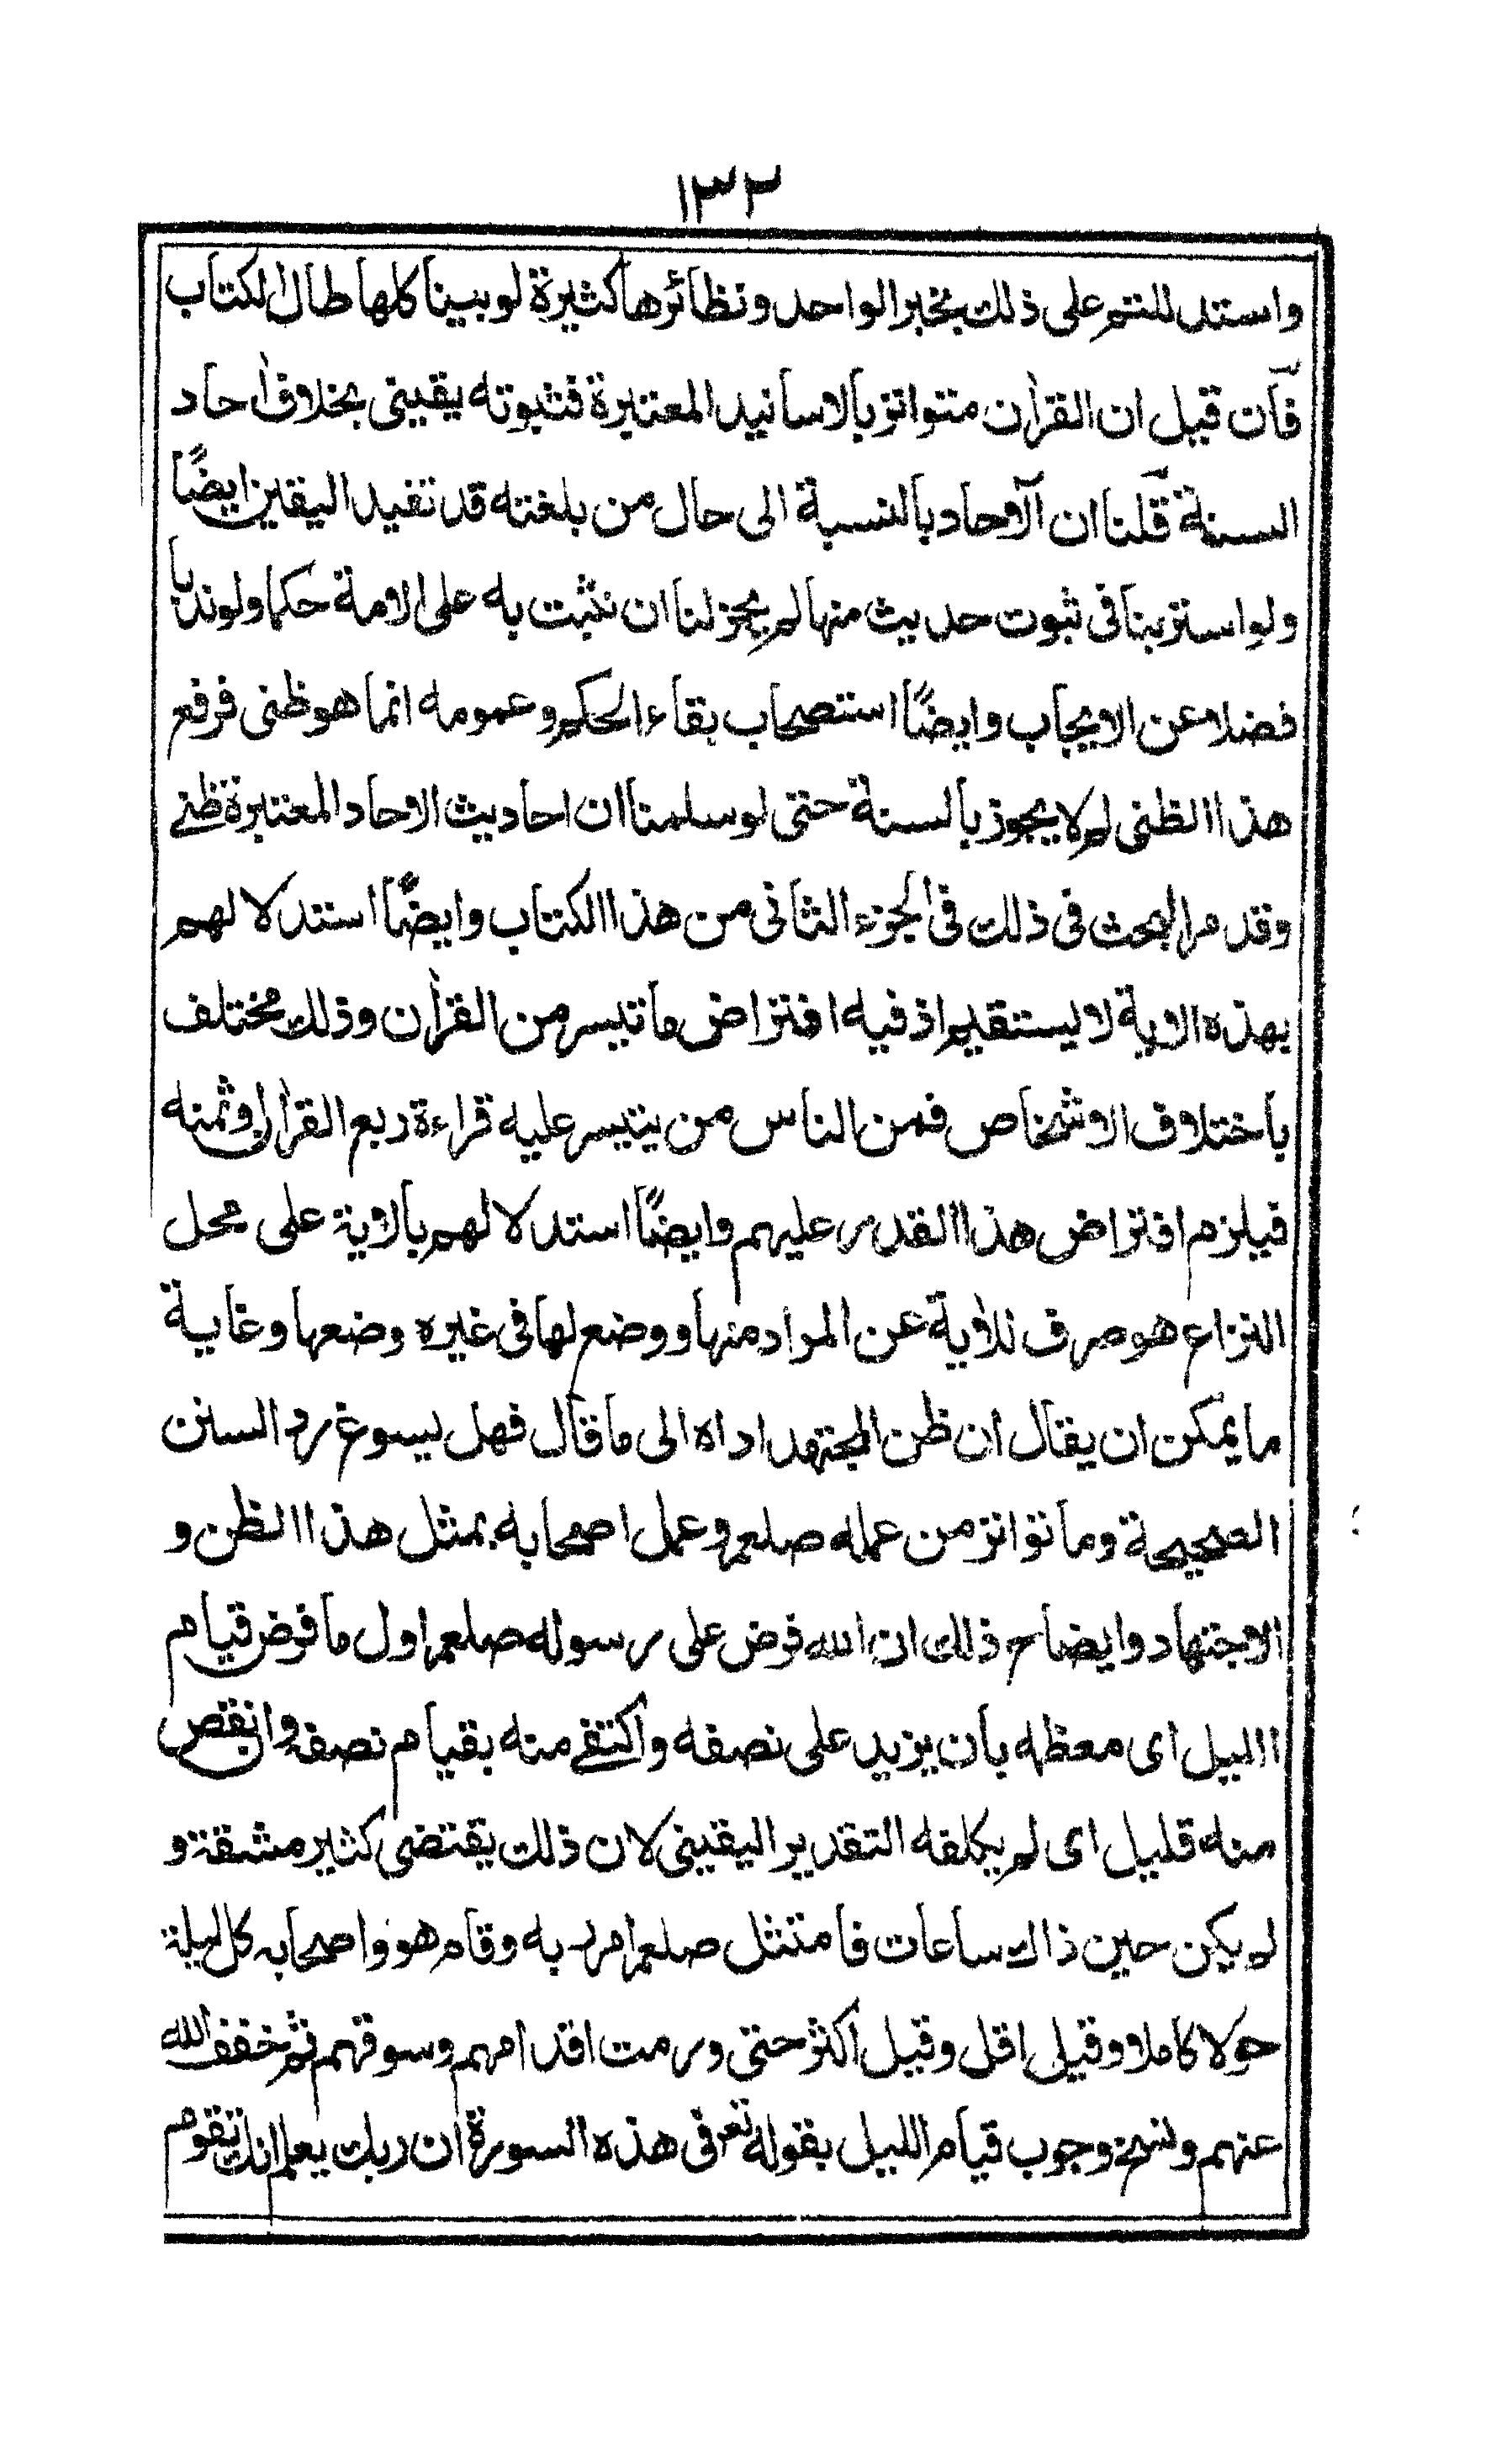 ١٣٢
واستدللتم على ذلك بخبر الواحد ونظائرها كثيرة لو بينا كلها طال الكتاب
فآن قيل ان القرأن متواتر بالاسانيد المعتبرة فثبوته يقينى بخلاف احاد
السنة قلنا ان الآحاد بالنسبة الى حال من بلغته قد تفيد اليقين ايضًا
ولو استربنا فى ثبوت حديث منها لم يجز لنا ان نثبت به على الامة حكما ولو ندبا
فضلا عن الايجاب وايضًا استصحاب بقاء الحكم وعمومه انما هو ظنى فرفع
هذا الظنى لم لا يجوز بالسنة حتى لو سلمنا ان احاديث الاحاد المعتبرة ظنے
وقد مر البحث فى ذلك فى الجزء الثانى من هذا الكتاب وايضًا استدلالهم
بهذه الاية لا يستقيم اذ فيه افتراض ما تيسر من القرأن وذلك مختلف
باختلاف الاشخاص فمن الناس من يتيسر عليه قراءة ربع القرأن او ثمنه
فيلزم افتراض هذا القدر عليهم وايضًا استدلالهم بالاية على محل
النزاع هو صرف للأية عن المراد منها ووضع لها فى غيره وضعها وغاية
ما يمكن ان يقال ان ظن المجتهد اداه الى ما قال فهل يسوغ رد السنن
الصحيحة وما تواتر من عمله صلعم وعمل اصحابه بمثل هذا الظن و
الاجتهاد وايضاح ذلك ان الله فرض على رسوله صلعم اول ما فرض قيام
الليل اى معظمه بان يزيد على نصفه واكتفے منه بقيام نصفه وانقص
منه قليل اى لم يكلفه التقدير اليقينى لان ذلك يقتضى كثير مشقة و
لم يكن حين ذاك ساعات فامتثل صلعم امر به وقام هو واصحابه كل ليلة
حولا كاملا وقيل اقل وقيل اكثر حتى ورمت اقدامهم وسوقهم ثم خفف الله
عنهم ونسخ وجوب قيام الليل بقوله تعر فى هذه السورة ان ربك يعلم انك تقوم